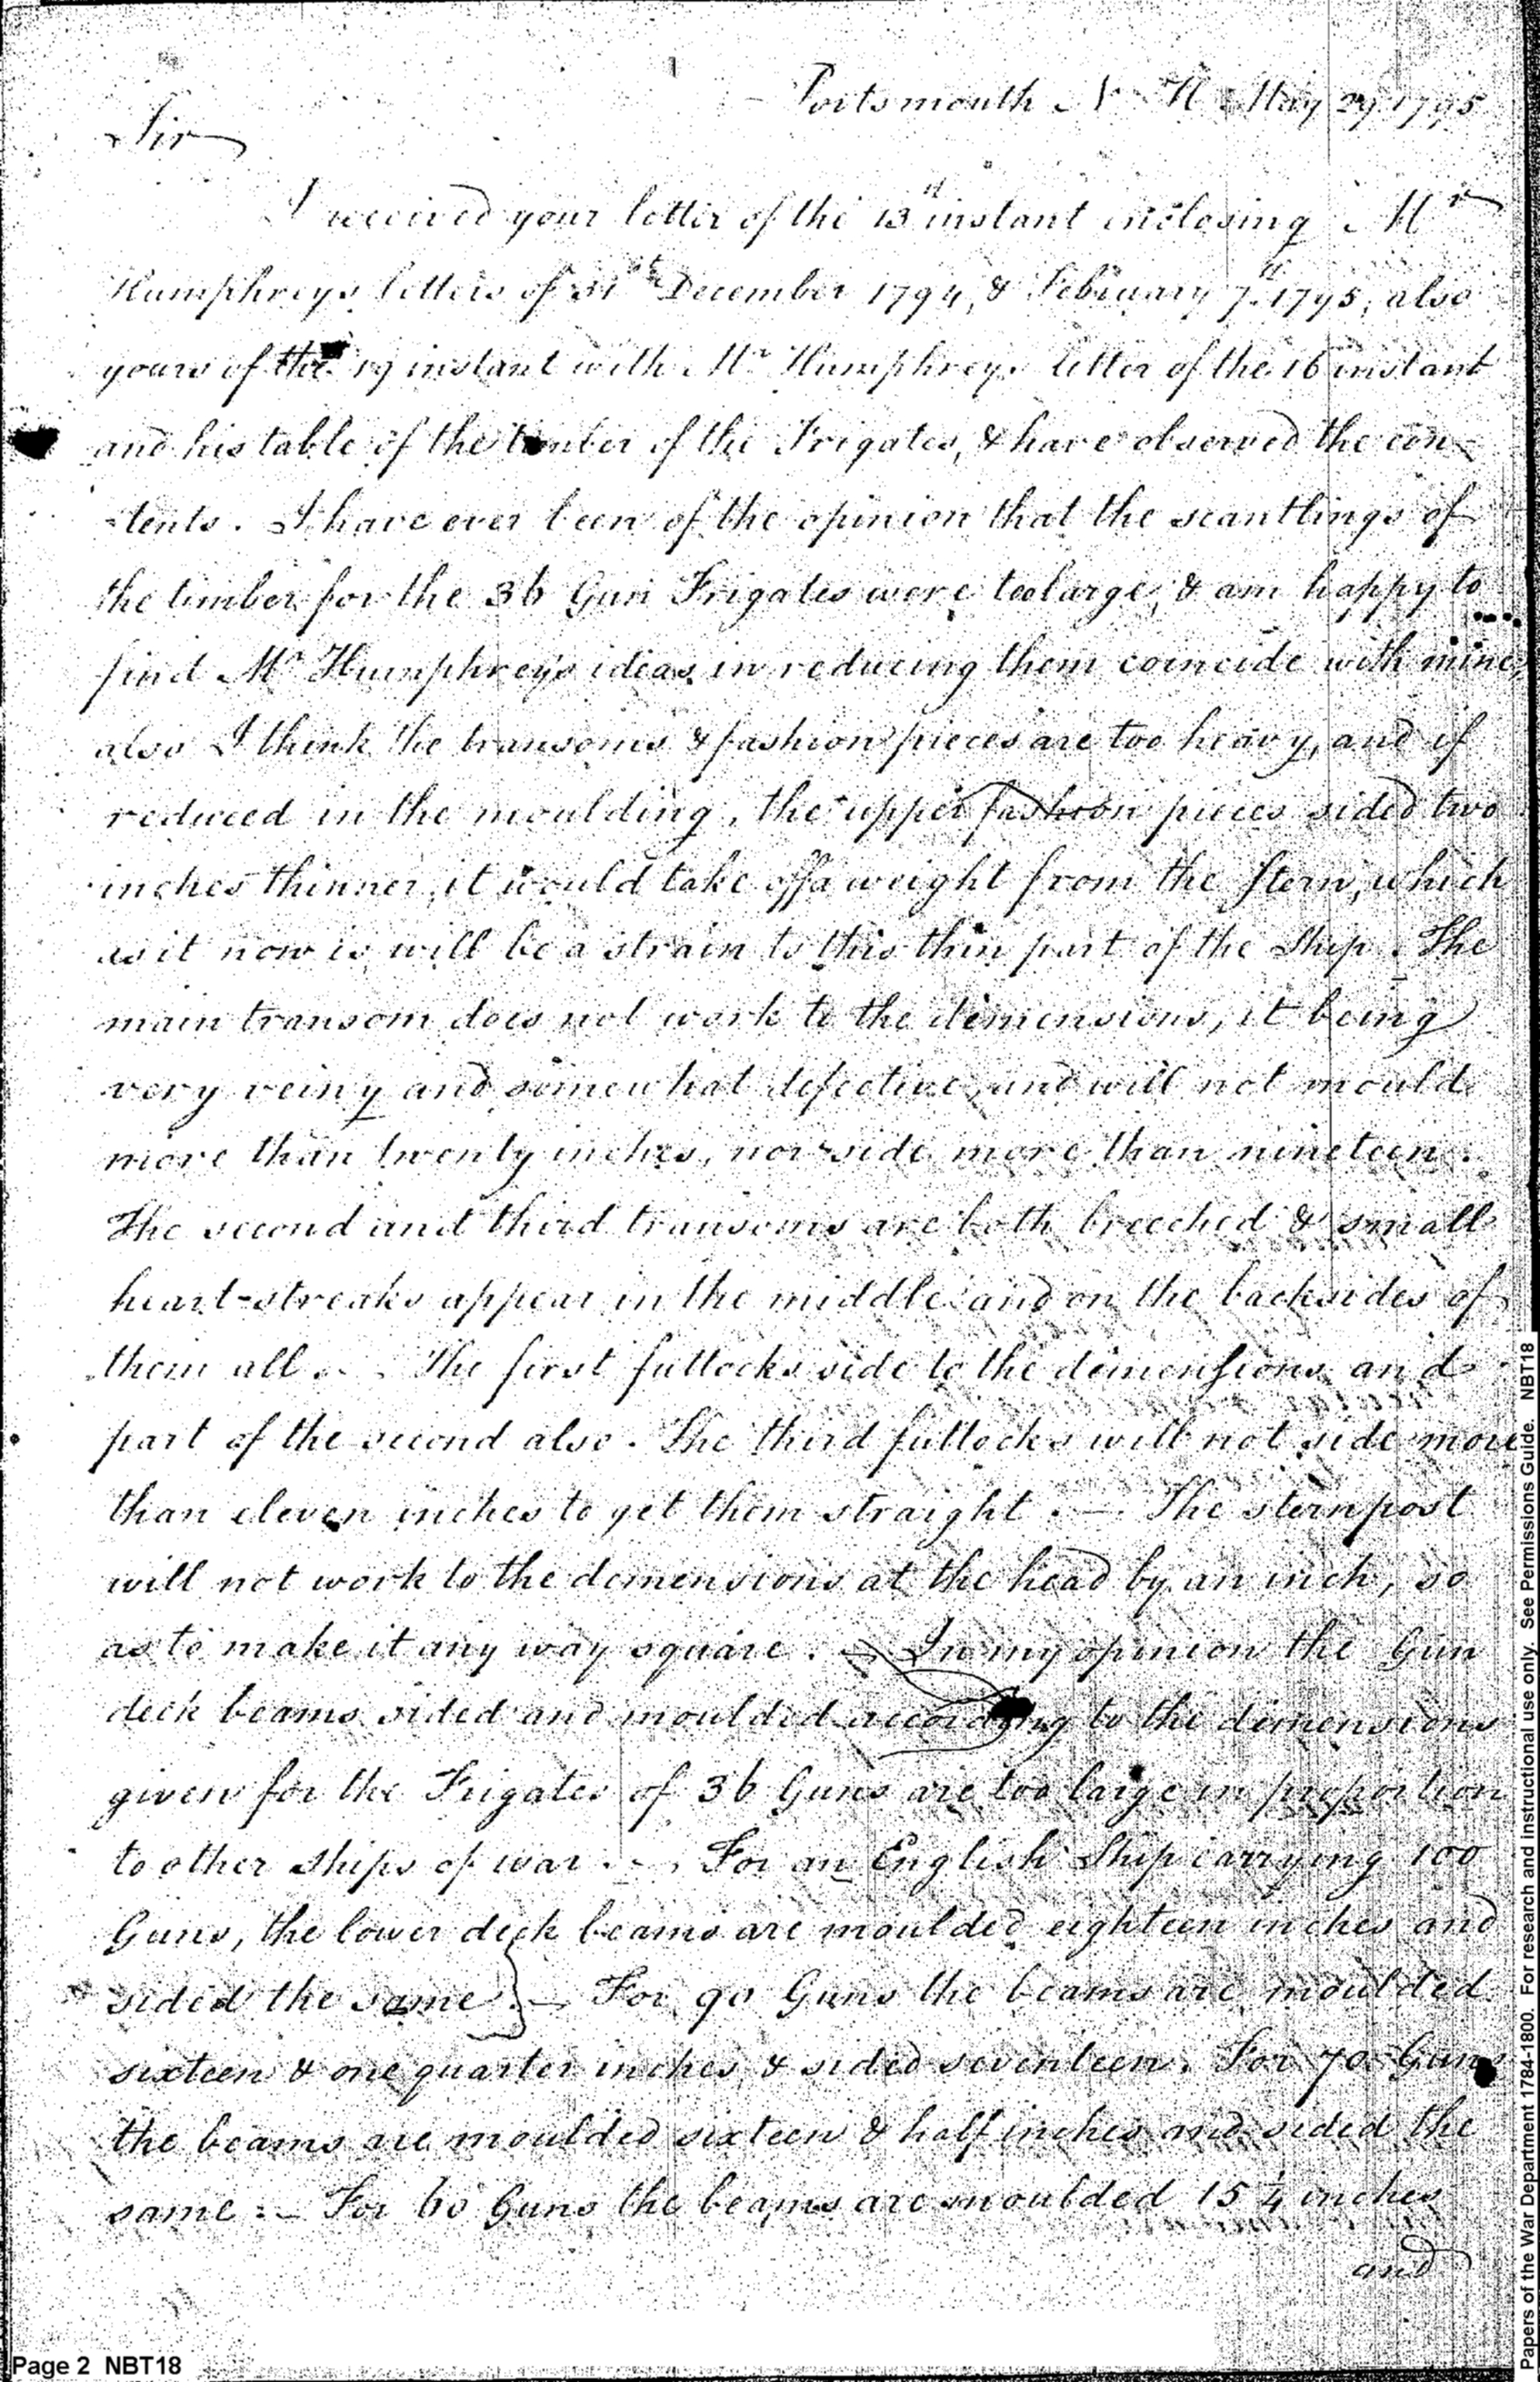 Portsmouth N H May 29 1795
Sir
I received your letter of the 13th instant inclosing Mr
Humphreys letters of 31st December 1794, & February 7th 1795, also
yours of the 19 instant with Mr Humphreys letter of the 16 instant
and his table of the timber of the Frigates, & have observed the con-
-tents. I have ever been of the opinion that the scantlings of
the timber for the 36 Gun Frigates were too large, & am happy to
find Mr Humphreys ideas in reducing them coincide with mine,
also I think the transoms & fashion pieces are too heavy, and if
reduced in the moulding, the upper fashion pieces sided two
inches thinner, it would take off a weight from the stern, which
as it now is will be a strain to this thin part of the Ship. The
main transom does not work to the dimensions, it being
very veiny and somewhat defective, and will not mould
more than twenty inches, nor side more than nineteen.
The second and third transoms are both breeched & small
heart-streaks appear in the middle and on the backsides of
them all. The first futtocks side to the dimensions and
part of the second also. The third futtocks will not side more
than eleven inches to get them straight. — The sternpost
will not work to the demensions at the head by an inch, so
as to make it any way square. — In my opinion the Gun
deck beams sided and moulded according to the dimensions
given for the Frigates of 36 Guns are too large in proportion
to other ships of war. — For an English Ship carrying 100
Guns, the lower deck beams are moulded eighteen inches and
sided the same. — For 90 Guns the beams are moulded
sixteen & one quarter inches & sided seventeen. For 70 Guns
the beams are moulded sixteen & half inches and sided the
same. — For 60 Guns the beams are moulded 15 1/4 inches
and
Page 2 NBT18
Papers of the War Department 1784-1800. For research and instructional use only. See Permissions Guide. NBT18